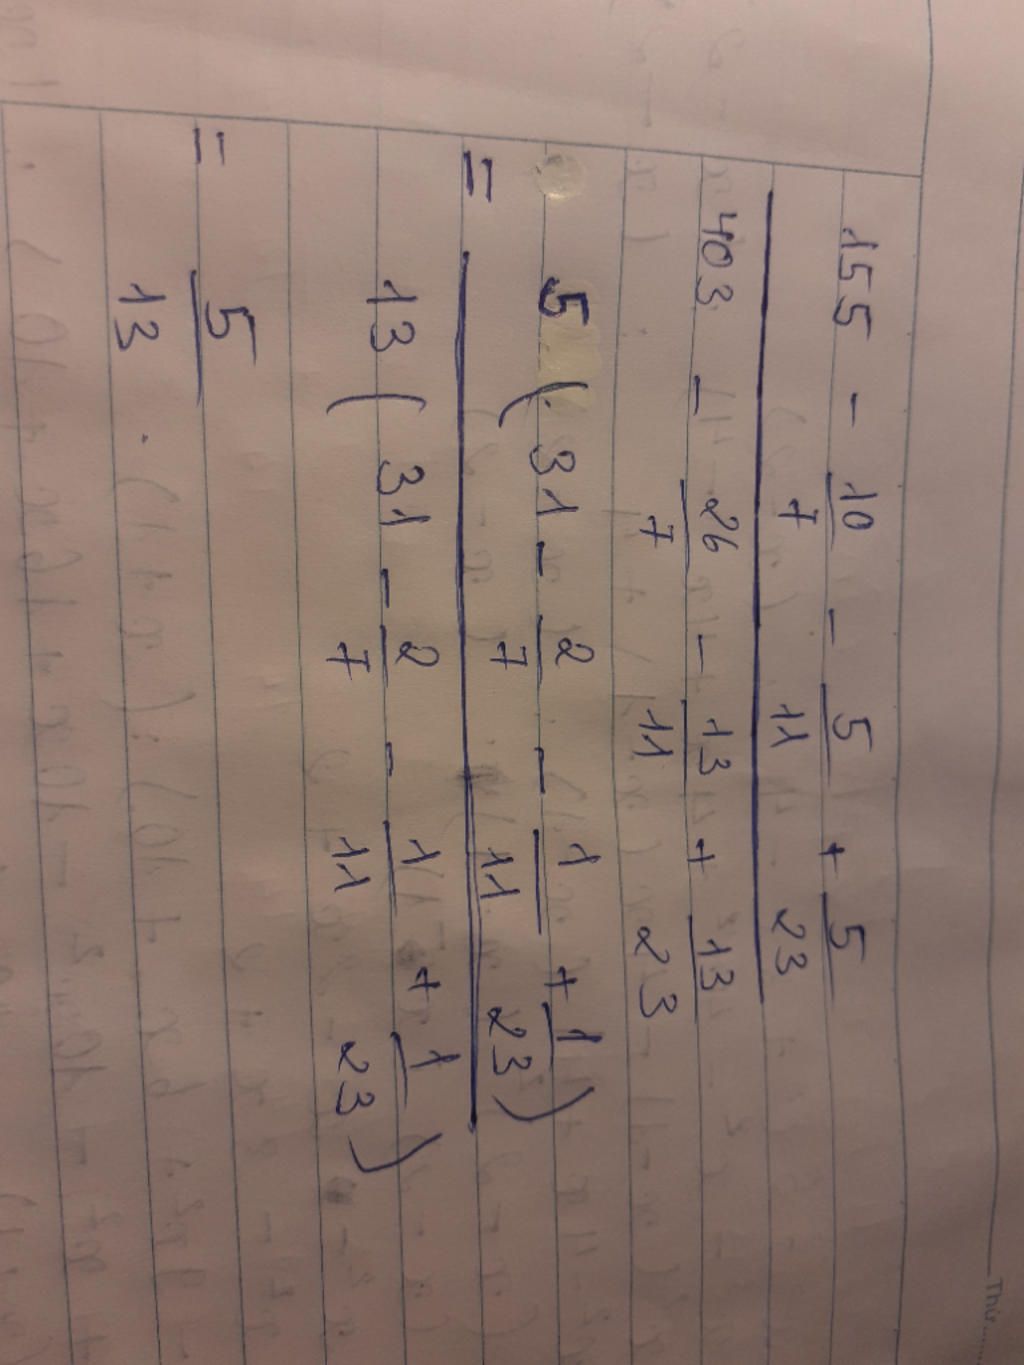 155 - 10/7 - 5/11 + 5/23
403 - 26/7 - 13/11 + 13/23
= 5 ( 31 - 2/7 - 1/11 + 1/23 )
13 ( 31 - 2/7 - 1/11 + 1/23 )
= 5/13
Thứ.....